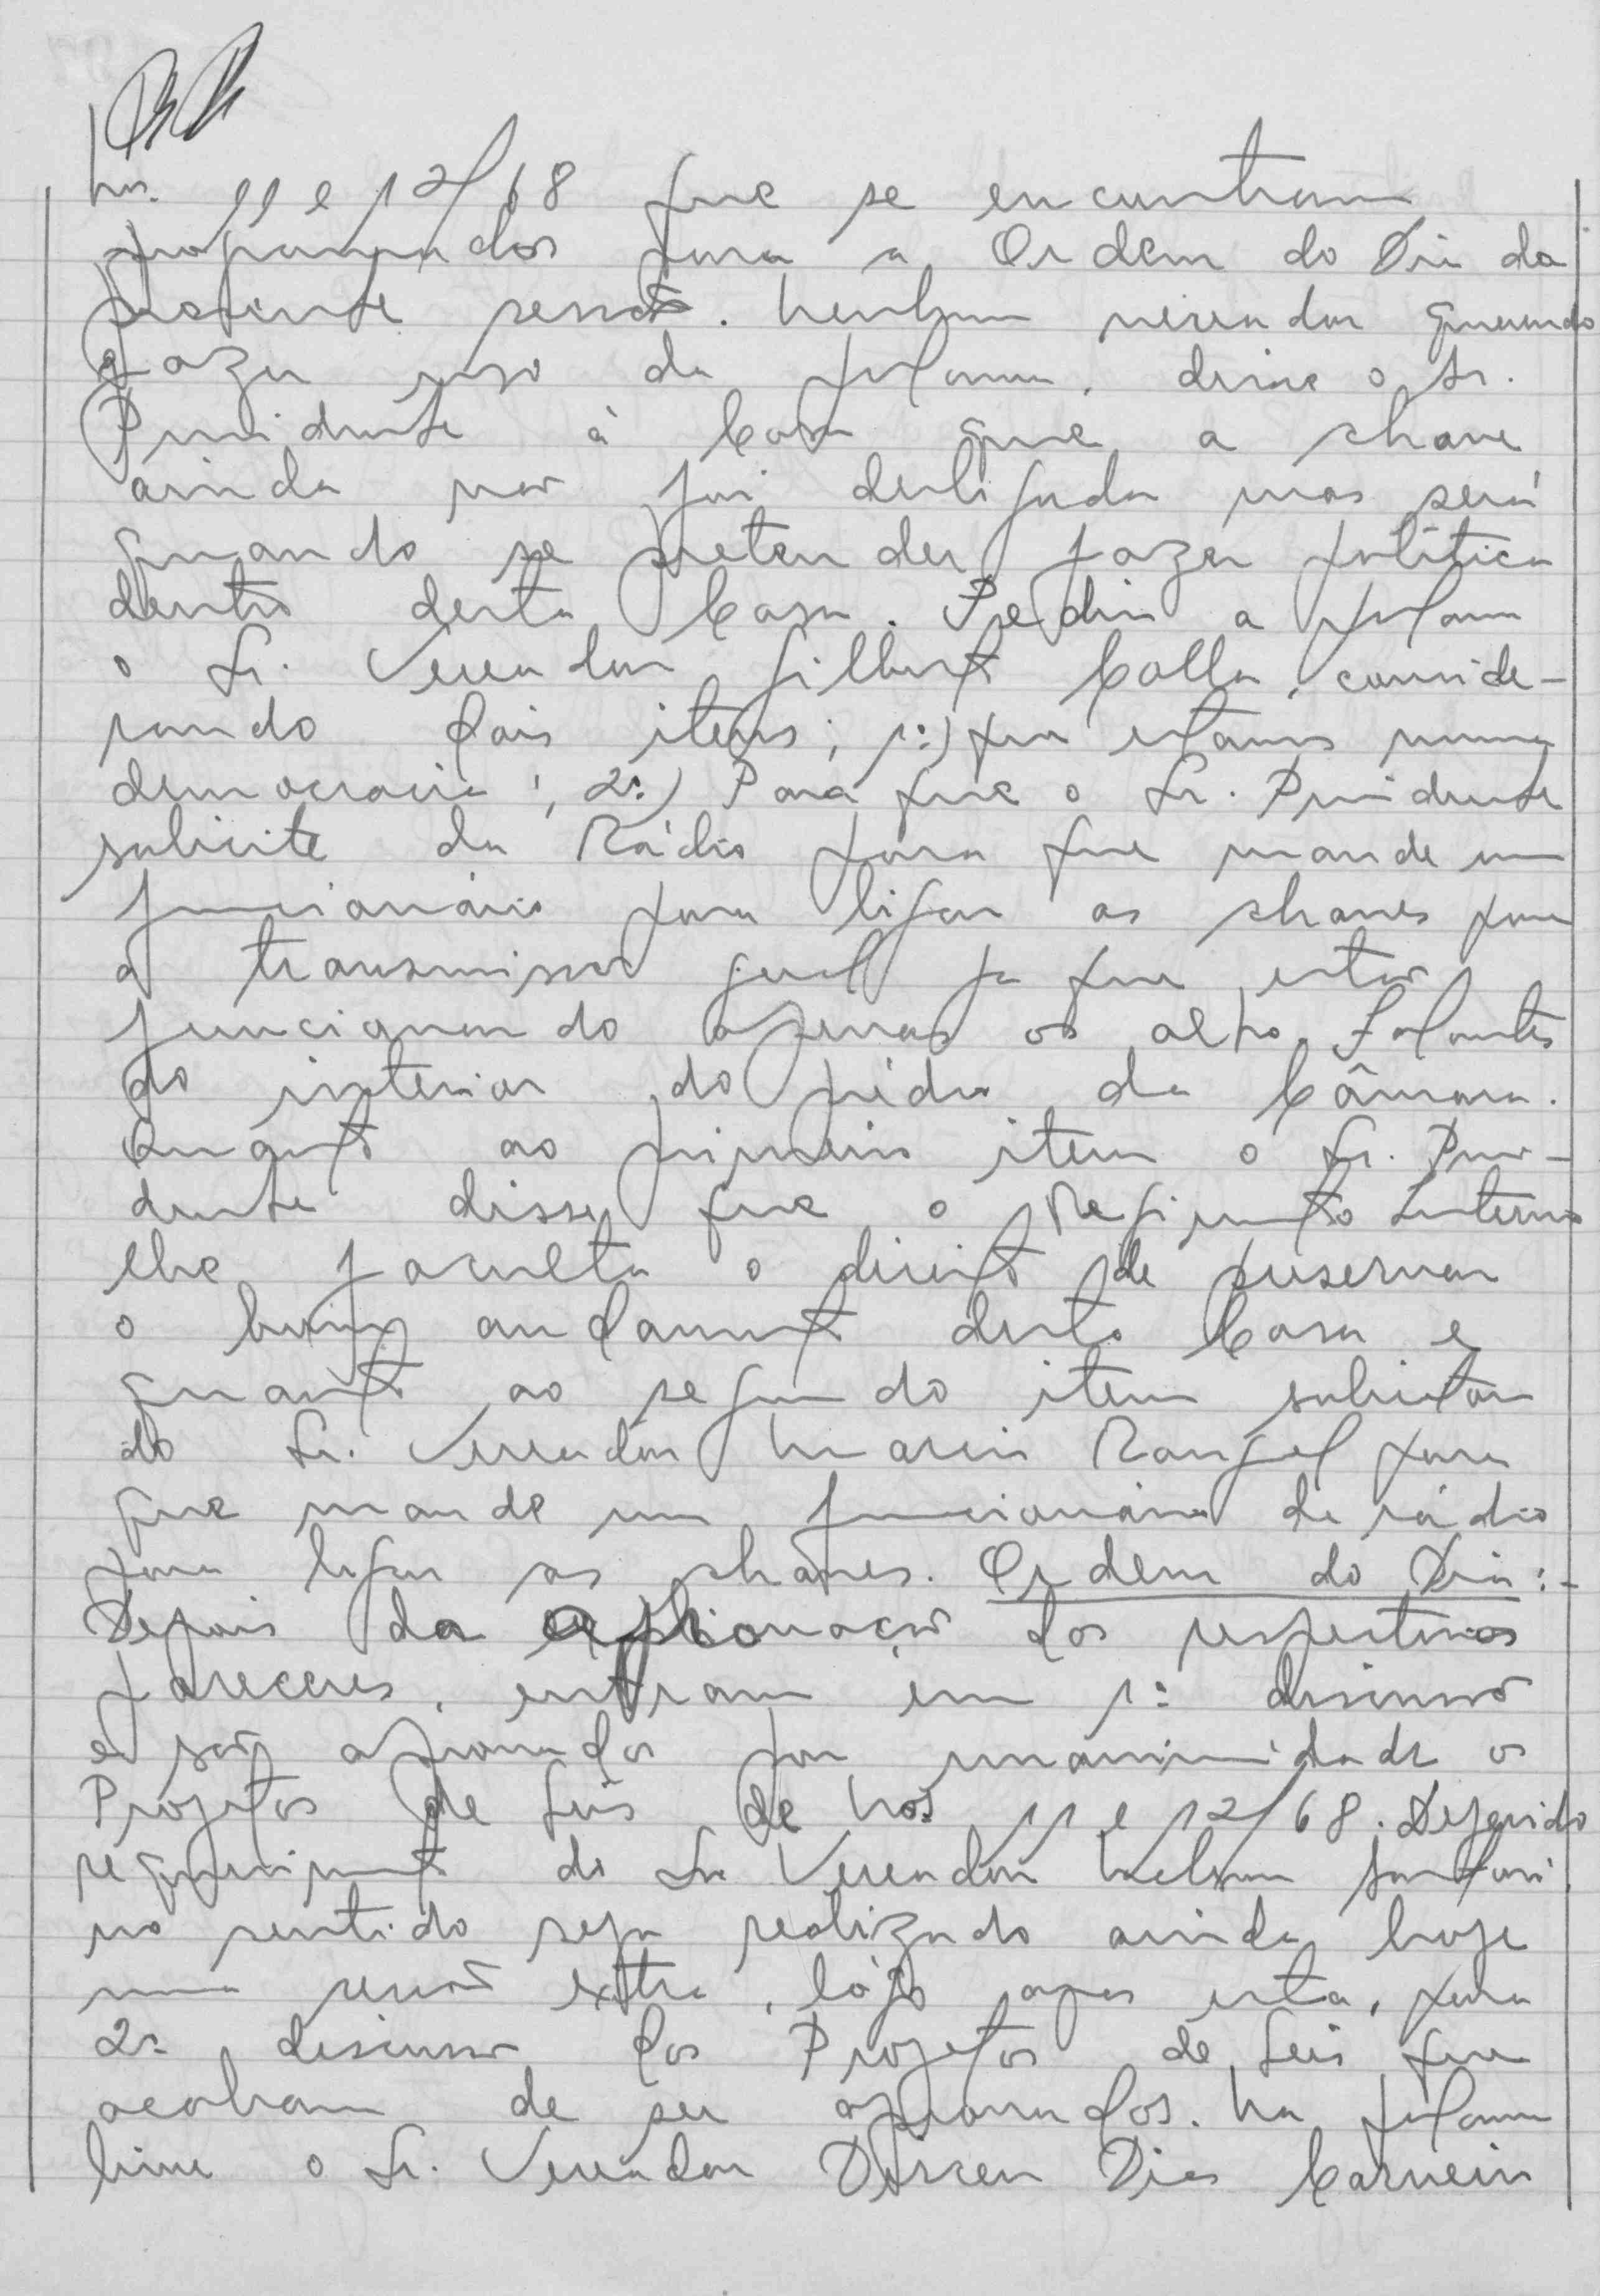 nos. 11 e 12/68 que se encontram
programados para a Ordem do Dia da
presente sessão. Nenhum vereador querendo
fazer uso da palavra, disse o Sr.
Presidente à Casa que a chave
ainda não foi desligada mas será
quando se pretender fazer política
dentro desta Casa. Pediu a palavra
o Sr. Vereador Gilberto Calla, conside-
rando dois itens; 1º) que estamos numa
democracia; 2º) Para que o Sr. Presidente
solicite da Rádio para que mande um
funcionário para ligar as chaves para
a transmissão geral já que estão
funcionando apenas os alto falantes
do interior do prédio da Câmara.
Quanto ao primeiro item o Sr. Presi-
dente disse que o Regimento Interno
lhe faculta o direito de preservar
o bom andamento desta Casa e
quanto ao segundo item solicitou
do Sr. Vereador Marcio Rangel para
que mande um funcionário da rádio
para ligar as chaves. Ordem do Dia:-
Depois da aprovação dos respectivos
pareceres, entram em 1ª discussão
e são aprovados por unanimidade os
Projetos de Leis de nos 11 e 12/68. Deferido
requerimento do Sr Vereador Nelson
no sentido seja realizado ainda hoje
uma sessão extra, lógo apos esta, para
2ª discussão dos Projetos de Leis que
acabam de ser aprovados. Na palavra
livre o Sr. Vereador Dirceu Dias Carneiro